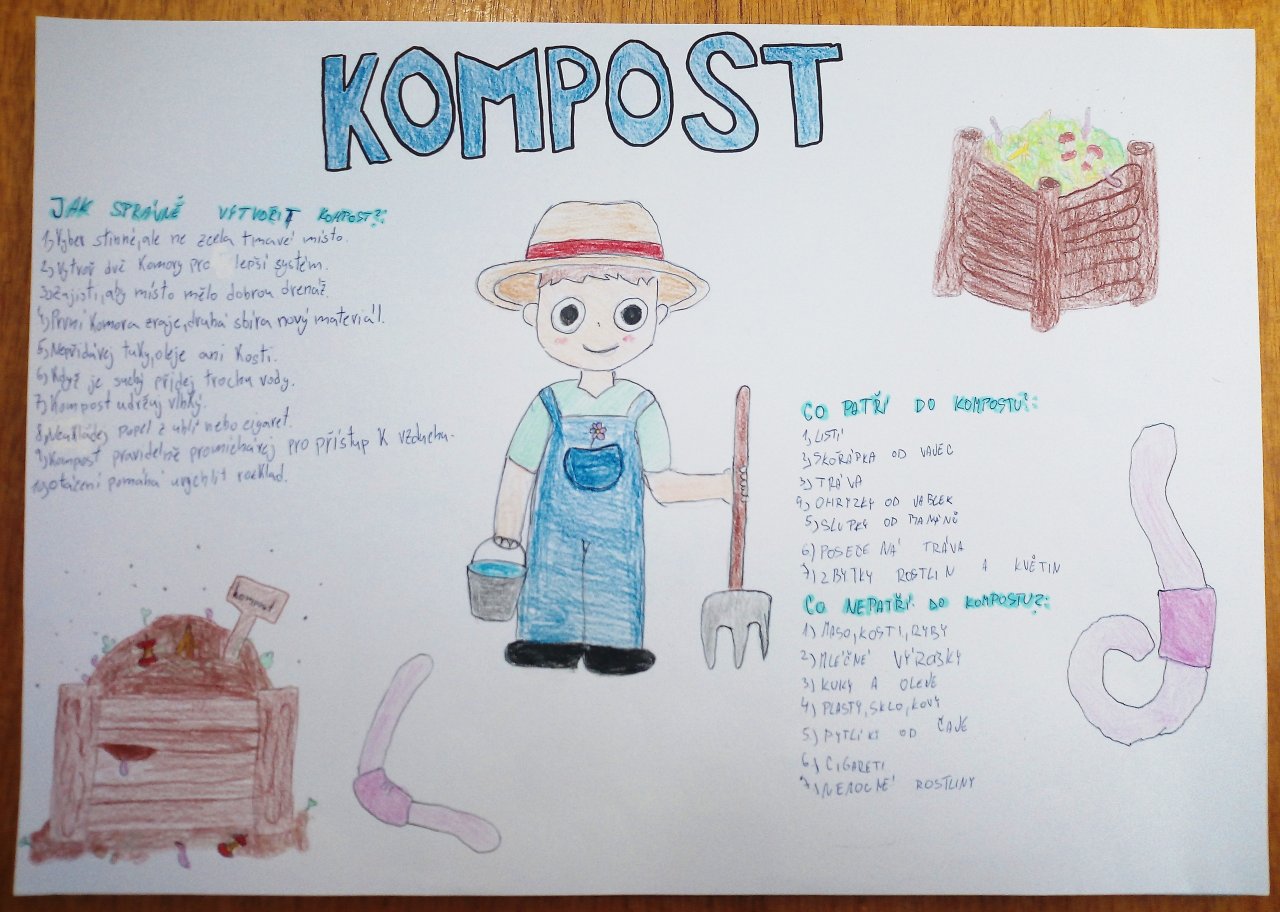 KOMPOST
JAK SPRÁVNĚ VYTVOŘIT KOMPOST?:
1) Vyber stinné, ale ne zcela tmavé místo.
2) Vytvoř dvě komory pro lepší systém.
3) Zajisti, aby místo mělo dobrou drenáž.
4) První komora zraje, druhá sbírá nový materiál.
5) Nepřidávej tuky, oleje ani kosti.
6) Když je suchý přidej trochu vody.
7) Kompost udržuj vlhký.
8) Nevkládej popel z uhlí nebo cigaret.
9) Kompost pravidelně promíchávej pro přístup k vzduchu.
10) Otáčení pomáhá urychlit rozklad.
kompost
CO PATŘÍ DO KOMPOSTU?:
1) LISTÍ
2) SKOŘÁPKA OD VAJEC
3) TRÁVA
4) OHRYZKY OD JABLEK
5) SLUPKY OD BANÁNŮ
6) POSEČENÁ TRÁVA
7) ZBYTKY ROSTLIN A KVĚTIN
CO NEPATŘÍ DO KOMPOSTU?:
1) MASO, KOSTI, RYBY
2) MLÉČNÉ VÝROBKY
3) KUKY A OLEJE
4) PLASTY, SKLO, KOVY
5) PYTLÍKY OD ČAJE
6) CIGARETI
7) NEMOCNÉ ROSTLINY